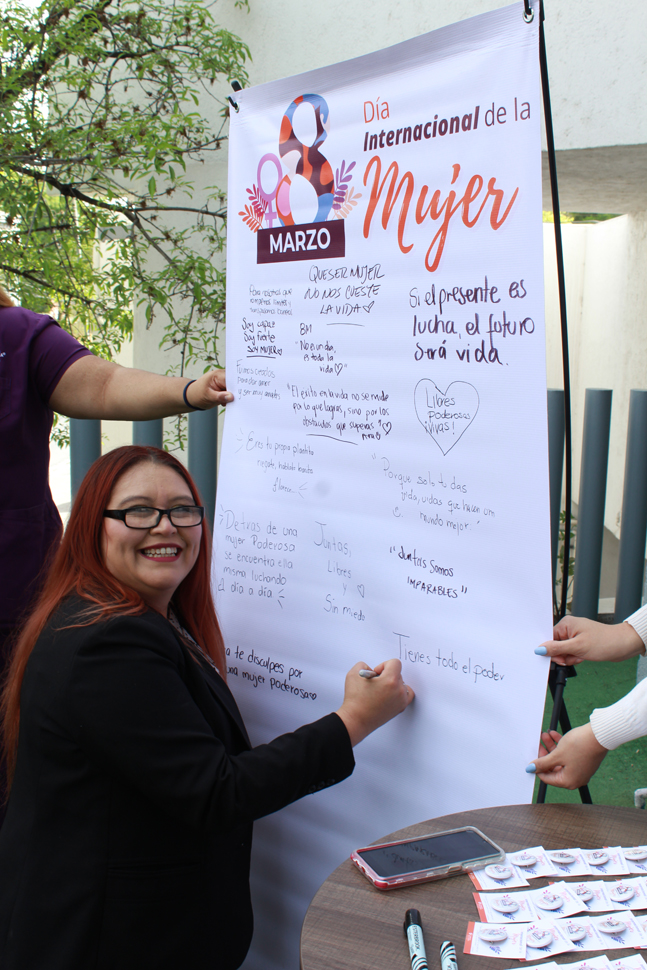 Día
Internacional de la
Mujer
8
MARZO
QUE SER MUJER
NO NOS CUESTE
LA VIDA
Si el presente es
lucha, el futuro
será vida.
Soy capaz
Soy fuerte
SOY MUJER
8M
"No es un día,
es toda la
vida"
"El exito en la vida no se mide
por lo que logras, sino por los
obstaculos que superas"
Libres
Poderosas
¡Vivas!
Eres tu propia plantita
"Porque solo tu das
vida, vidas que hacen un
mundo mejor."
Detras de una
mujer Poderosa
se encuentra ella
misma luchando
día a día
Juntas,
Libres
y
Sin miedo
"Juntas Somos
IMPARABLES"
te disculpes por
una mujer poderosa
Tienes todo el poder